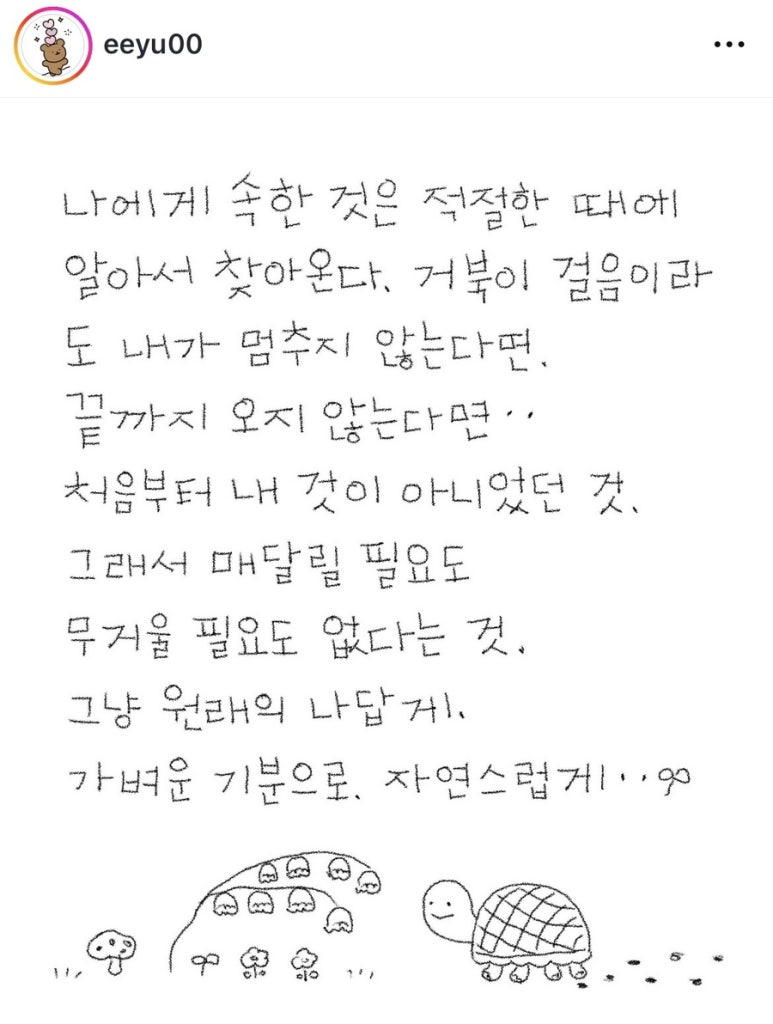 eeyu00
나에게 속한 것은 적절한 때에
알아서 찾아온다. 거북이 걸음이라
도 내가 멈추지 않는다면.
끝까지 오지 않는다면..
처음부터 내 것이 아니었던 것.
그래서 매달릴 필요도
무거울 필요도 없다는 것.
그냥 원래의 나답게.
가벼운 기분으로. 자연스럽게..